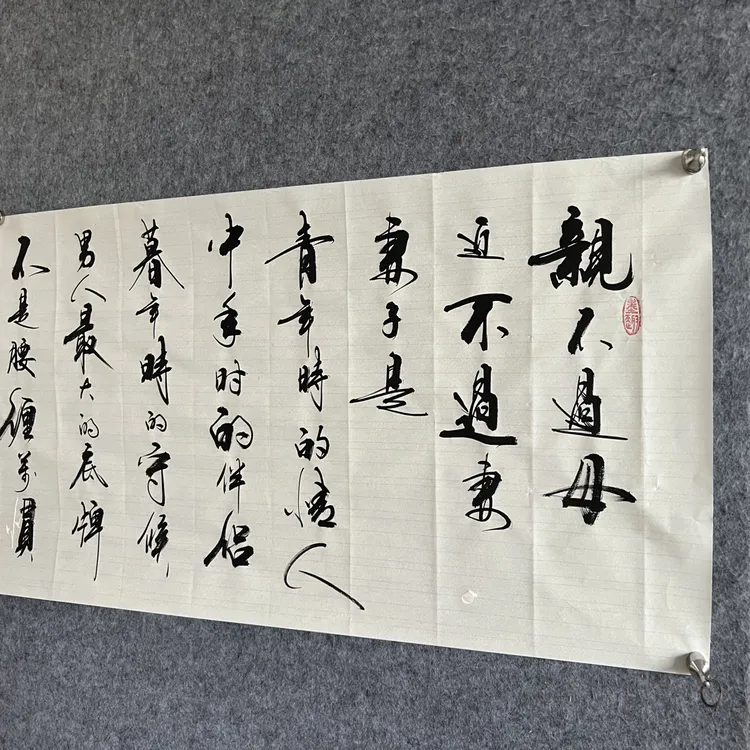 親不過母
近不過妻
妻子是
青年時的情人
中年时的伴侣
暮年時的守候
男人最大的底牌
不是腰纏萬貫